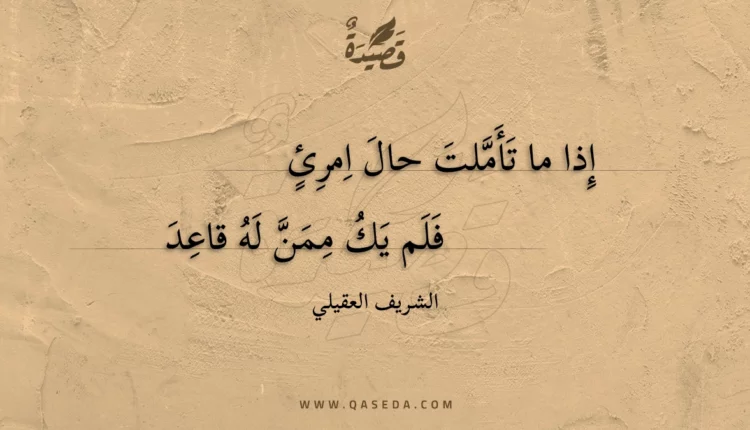 قَصِيْدَةٌ
إِذا ما تَأَمَّلتَ حالَ اِمرِئٍ
فَلَم يَكُ مِمَنَّ لَهُ قاعِدَ
الشريف العقيلي
WWW.QASEDA.COM